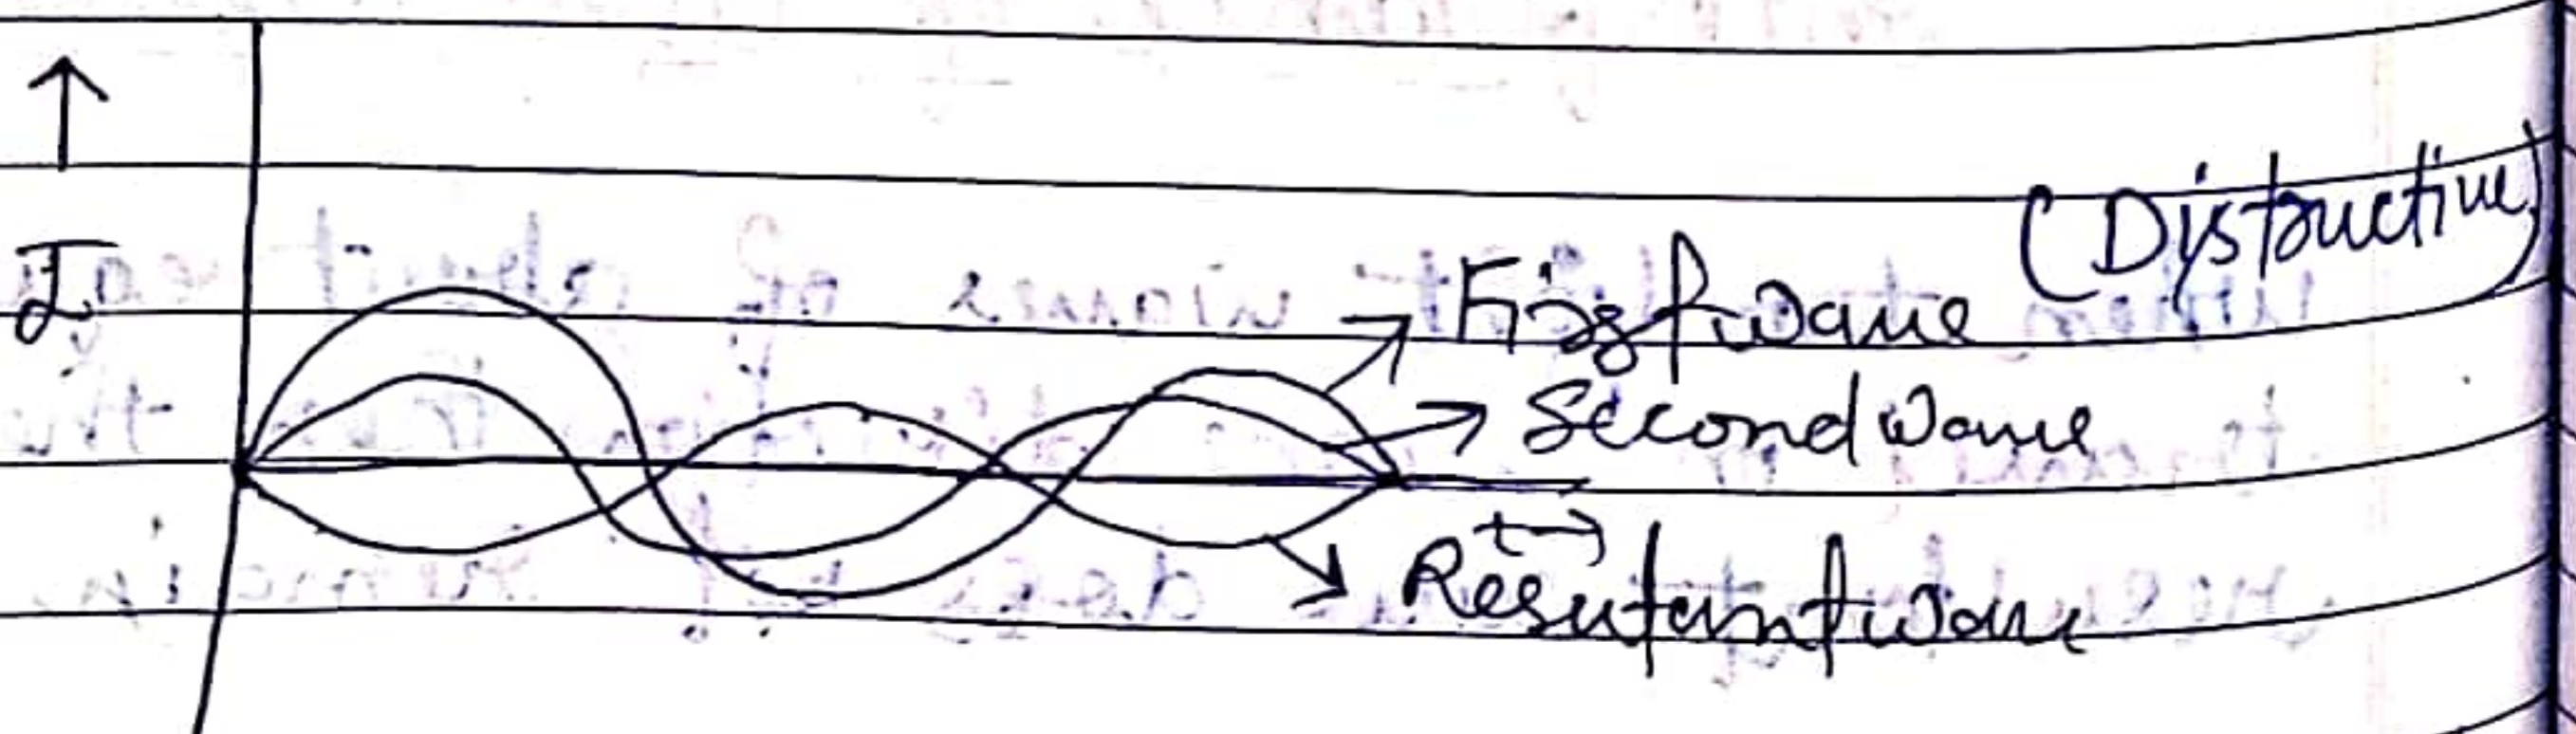 I
(Distructive)
First wave
Second wave
t →
Resultant wave